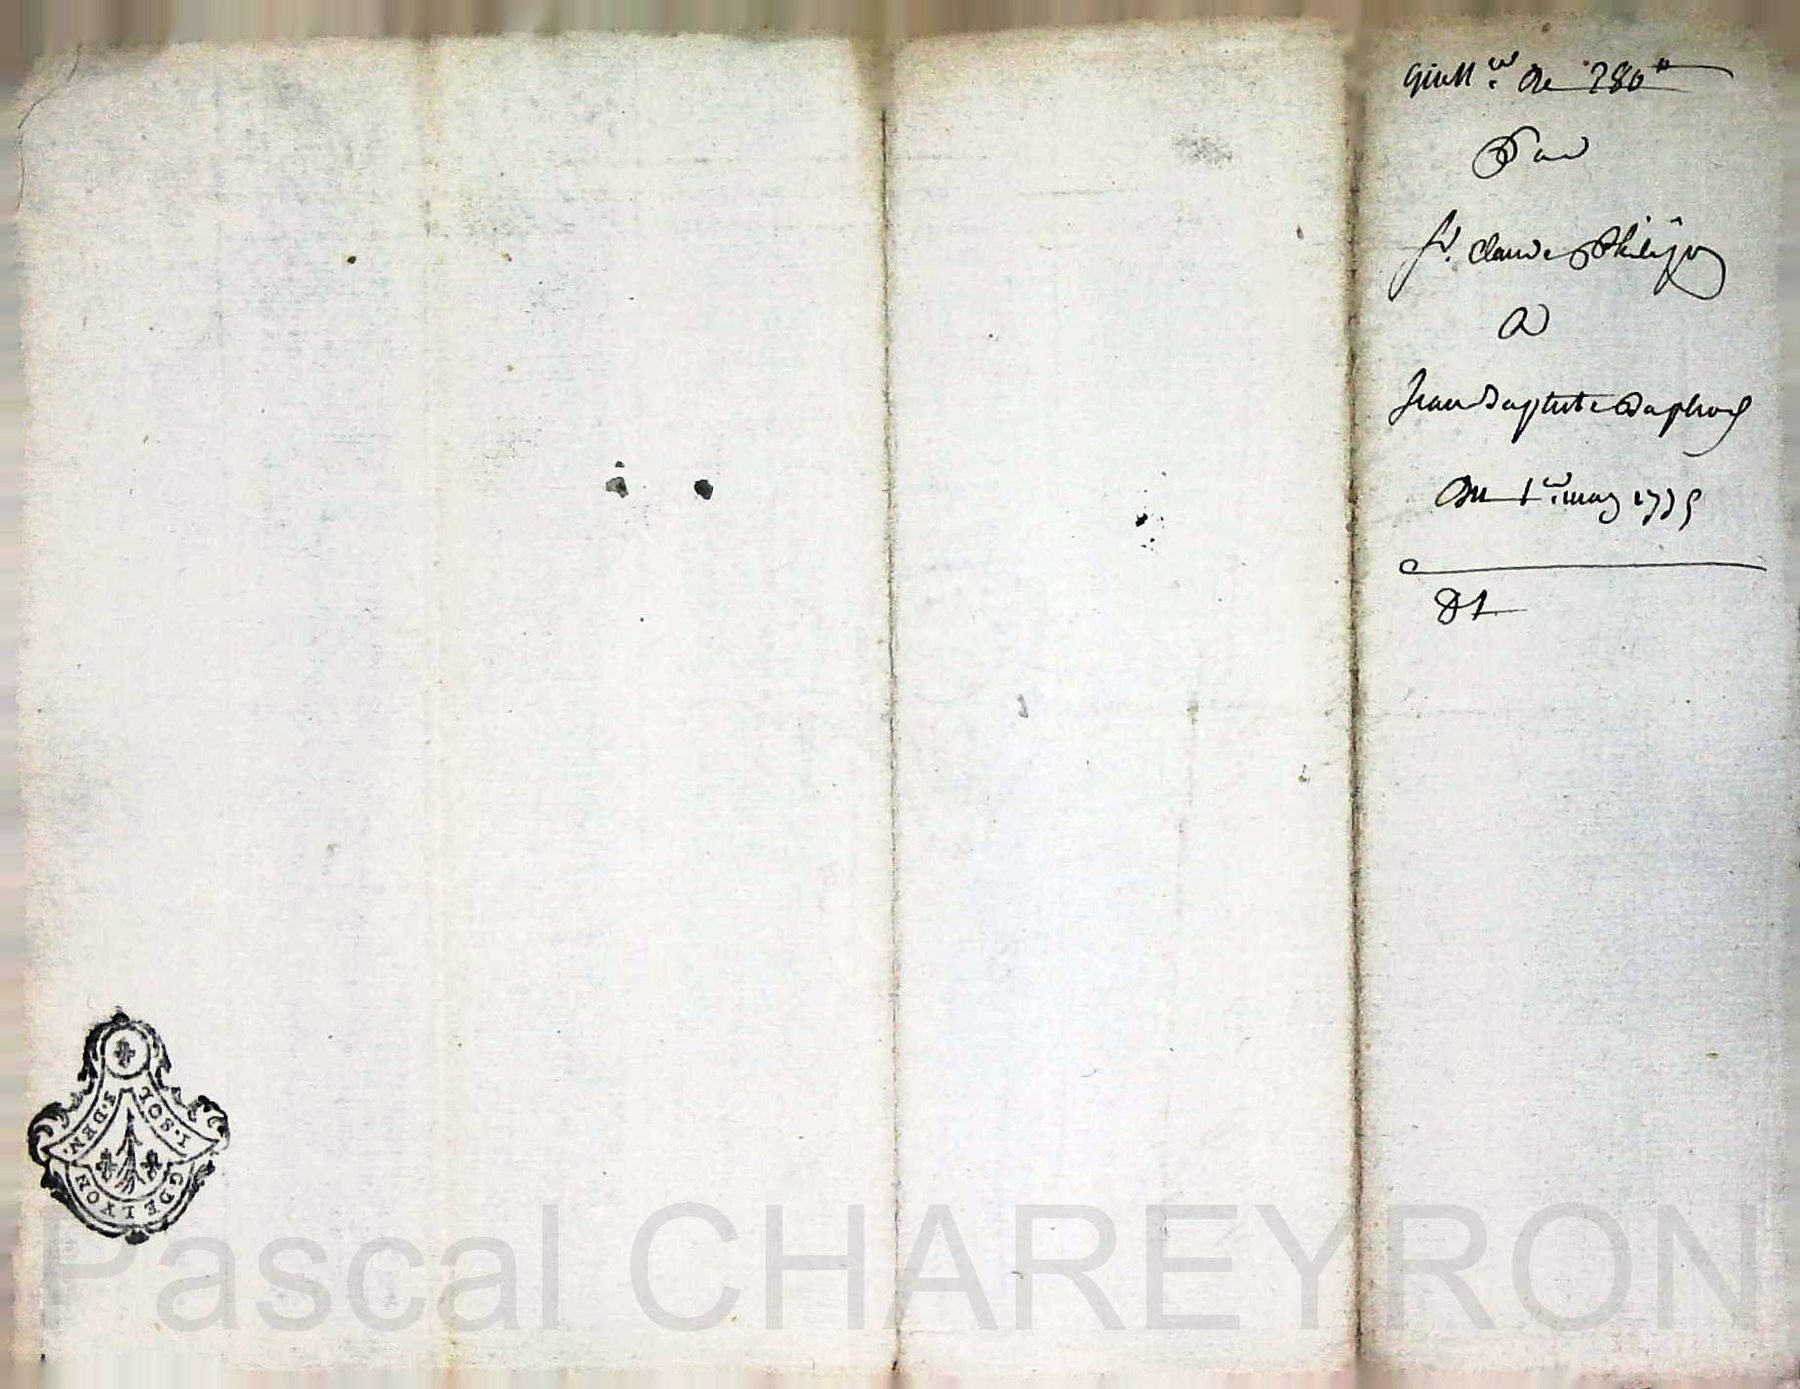 Quitt.ce De 280#
Par
Sr. Claude Philipon
A
Jean Baptiste
Du 1er. may 1775
D 1
1. SOL.
8. DEN.
G DE LYON
Pascal CHAREYRON